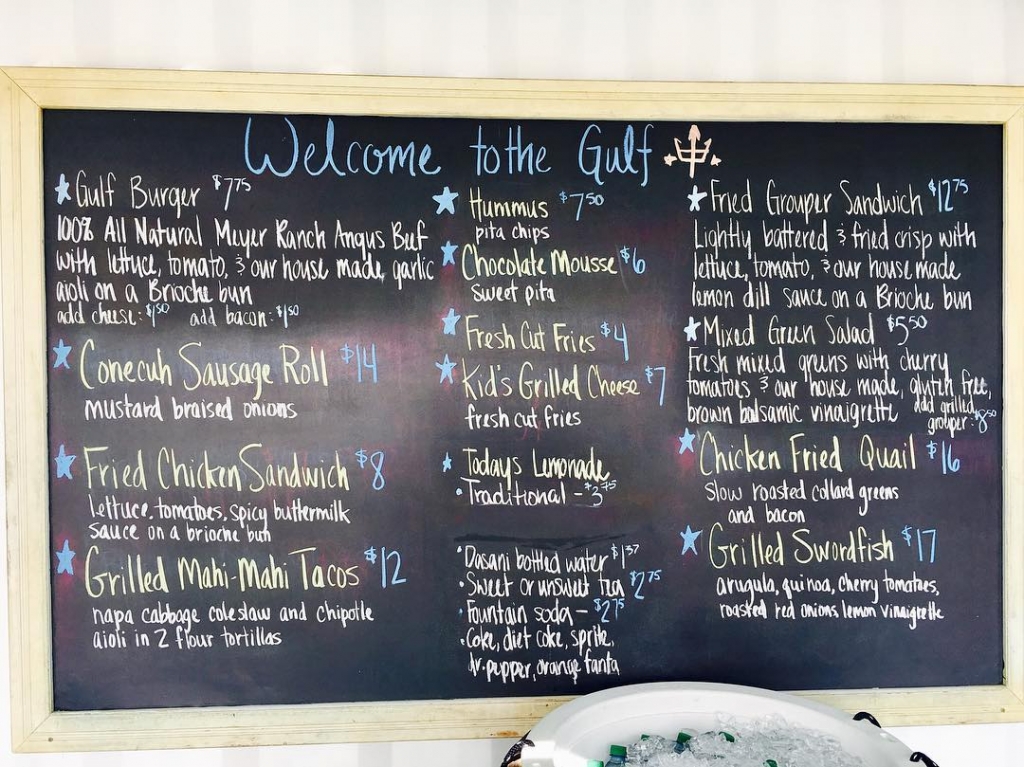 Welcome to the Gulf
Gulf Burger $7.75
100% All Natural Meyer Ranch Angus Beef
with lettuce, tomato, & our house made, garlic
aioli on a Brioche bun
add cheese: $1.50 add bacon: $1.50
Conecuh Sausage Roll $14
mustard braised onions
Fried Chicken Sandwich $8
lettuce, tomatoes, spicy buttermilk
sauce on a brioche bun
Grilled Mahi-Mahi Tacos $12
napa cabbage coleslaw and chipotle
aioli in 2 flour tortillas
Hummus $7.50
pita chips
Chocolate Mousse $6
sweet pita
Fresh Cut Fries $4
Kid's Grilled Cheese $7
fresh cut fries
Today's Lemonade
• Traditional - $3.75
• Dasani bottled water $1.37
• Sweet or unsweet tea $2.75
• Fountain soda - $2.75
• Coke, diet coke, sprite,
dr. pepper, orange fanta
Fried Grouper Sandwich $12.75
Lightly battered & fried crisp with
lettuce, tomato, & our house made
lemon dill sauce on a Brioche bun
Mixed Green Salad $5.50
Fresh mixed greens with cherry
tomatoes & our house made, gluten free,
brown balsamic vinaigrette add grilled
grouper: $8.50
Chicken Fried Quail $16
slow roasted collard greens
and bacon
Grilled Swordfish $17
arugula, quinoa, cherry tomatoes,
roasted red onions, lemon vinaigrette